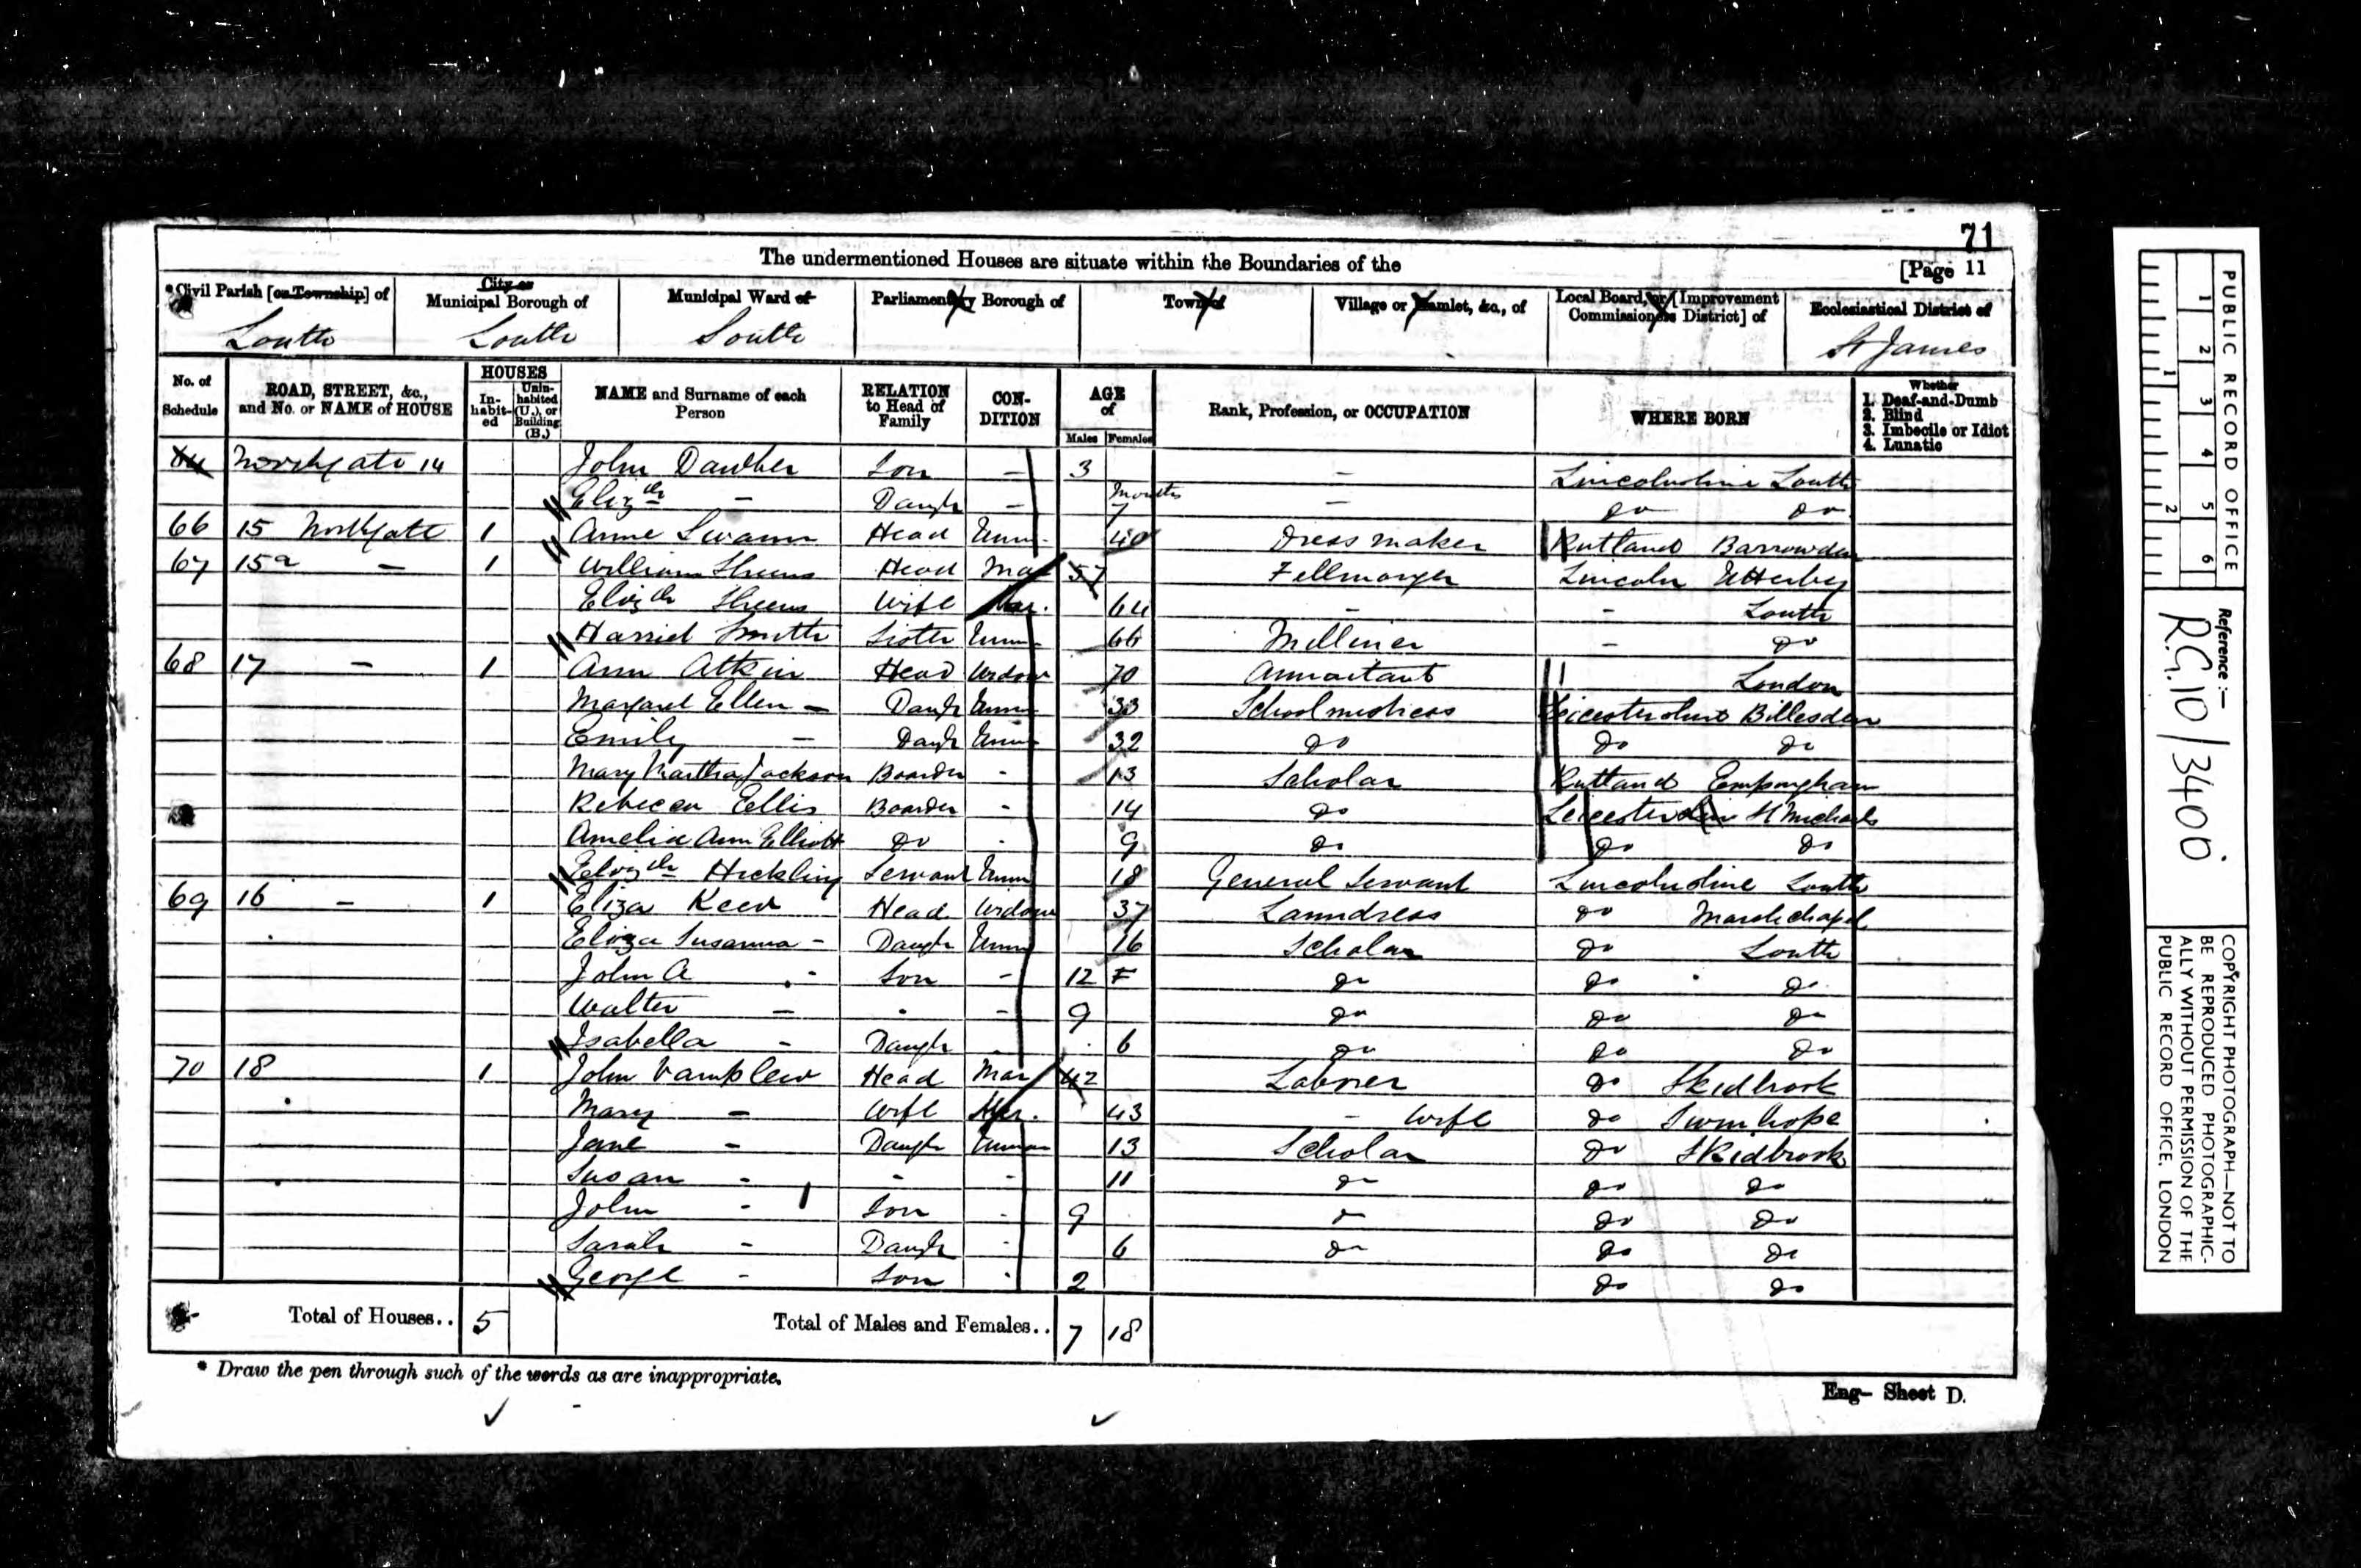 71
The undermentioned Houses are situate within the Boundaries of the
[Page 11
*Civil Parish [or Township] of
City or Municipal Borough of
Municipal Ward of
Parliamentary Borough of
Town of
Village or Hamlet, &c., of
Local Board, or [Improvement Commissioners District] of
Ecclesiastical District of
Louth Louth South St James
No. of Schedule
ROAD, STREET, &c., and No. or NAME of HOUSE
HOUSES
In-habit-ed
Unin-habited (U.), or Building (B.)
NAME and Surname of each Person
RELATION to Head of Family
CON-DITION
AGE of
Males Females
Rank, Profession, or OCCUPATION
WHERE BORN
Whether
1. Deaf-and-Dumb
2. Blind
3. Imbecile or Idiot
4. Lunatic
Northgate 14 John Dawber Son - 3 - Lincolnshire Louth
Elizth - Daugh - Months 7 - Do Do
66 15 Northgate 1 Anne Swann Head Unm. 40 Dress maker Rutland Barrowden
67 15a - 1 William Head Mar 57 Fellmonger Lincoln Utterby
Elizth Wife Mar. 64 - - Louth
Harriet Smith Sister Unm 66 Milliner - Do
68 17 - 1 Ann Atkin Head Widow 70 Annuitant London
Margaret Ellen - Daugh Unm 33 Schoolmistress Leicestershire Billesden
Emily - Daugh Unm 32 Do Do Do
Mary Martha Jackson Boarder - 13 Scholar Rutland Empingham
Rebecca Ellis Boarder - 14 Do Leicestershire St Michaels
Amelia Ann Elliott Do - 9 Do Do Do
Elizth Hickling Servant Unm 18 General Servant Lincolnshire Louth
69 16 - 1 Eliza Head Widow 37 Laundress Do Marshchapel
Eliza Susanna - Daugh Unm 16 Scholar Do Louth
John A - Son - 12 F Do Do Do
Walter - - 9 Do Do Do
Isabella - Daugh - 6 Do Do Do
70 18 1 John Vamplew Head Mar 42 Laborer Do Skidbrook
Mary - Wife Mar. 43 - Wife Do Swinhope
Jane - Daugh Unm 13 Scholar Do Skidbrook
Susan - - - 11 Do Do Do
John - Son - 9 Do Do Do
Sarah - Daugh - 6 Do Do Do
George - Son - 2 Do Do
Total of Houses.. 5 Total of Males and Females.. 7 18
* Draw the pen through such of the words as are inappropriate.
Eng- Sheet D.
PUBLIC RECORD OFFICE
1 2 3 4 5 6
1 2
Reference:-
R.G. 10/3400
COPYRIGHT PHOTOGRAPH—NOT TO
BE REPRODUCED PHOTOGRAPHIC-
ALLY WITHOUT PERMISSION OF THE
PUBLIC RECORD OFFICE, LONDON